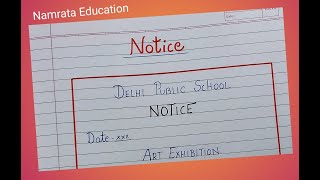 Namrata Education
Notice
DELHI PUBLIC SCHOOL
NOTICE
Date-xxx
ART EXHIBITION